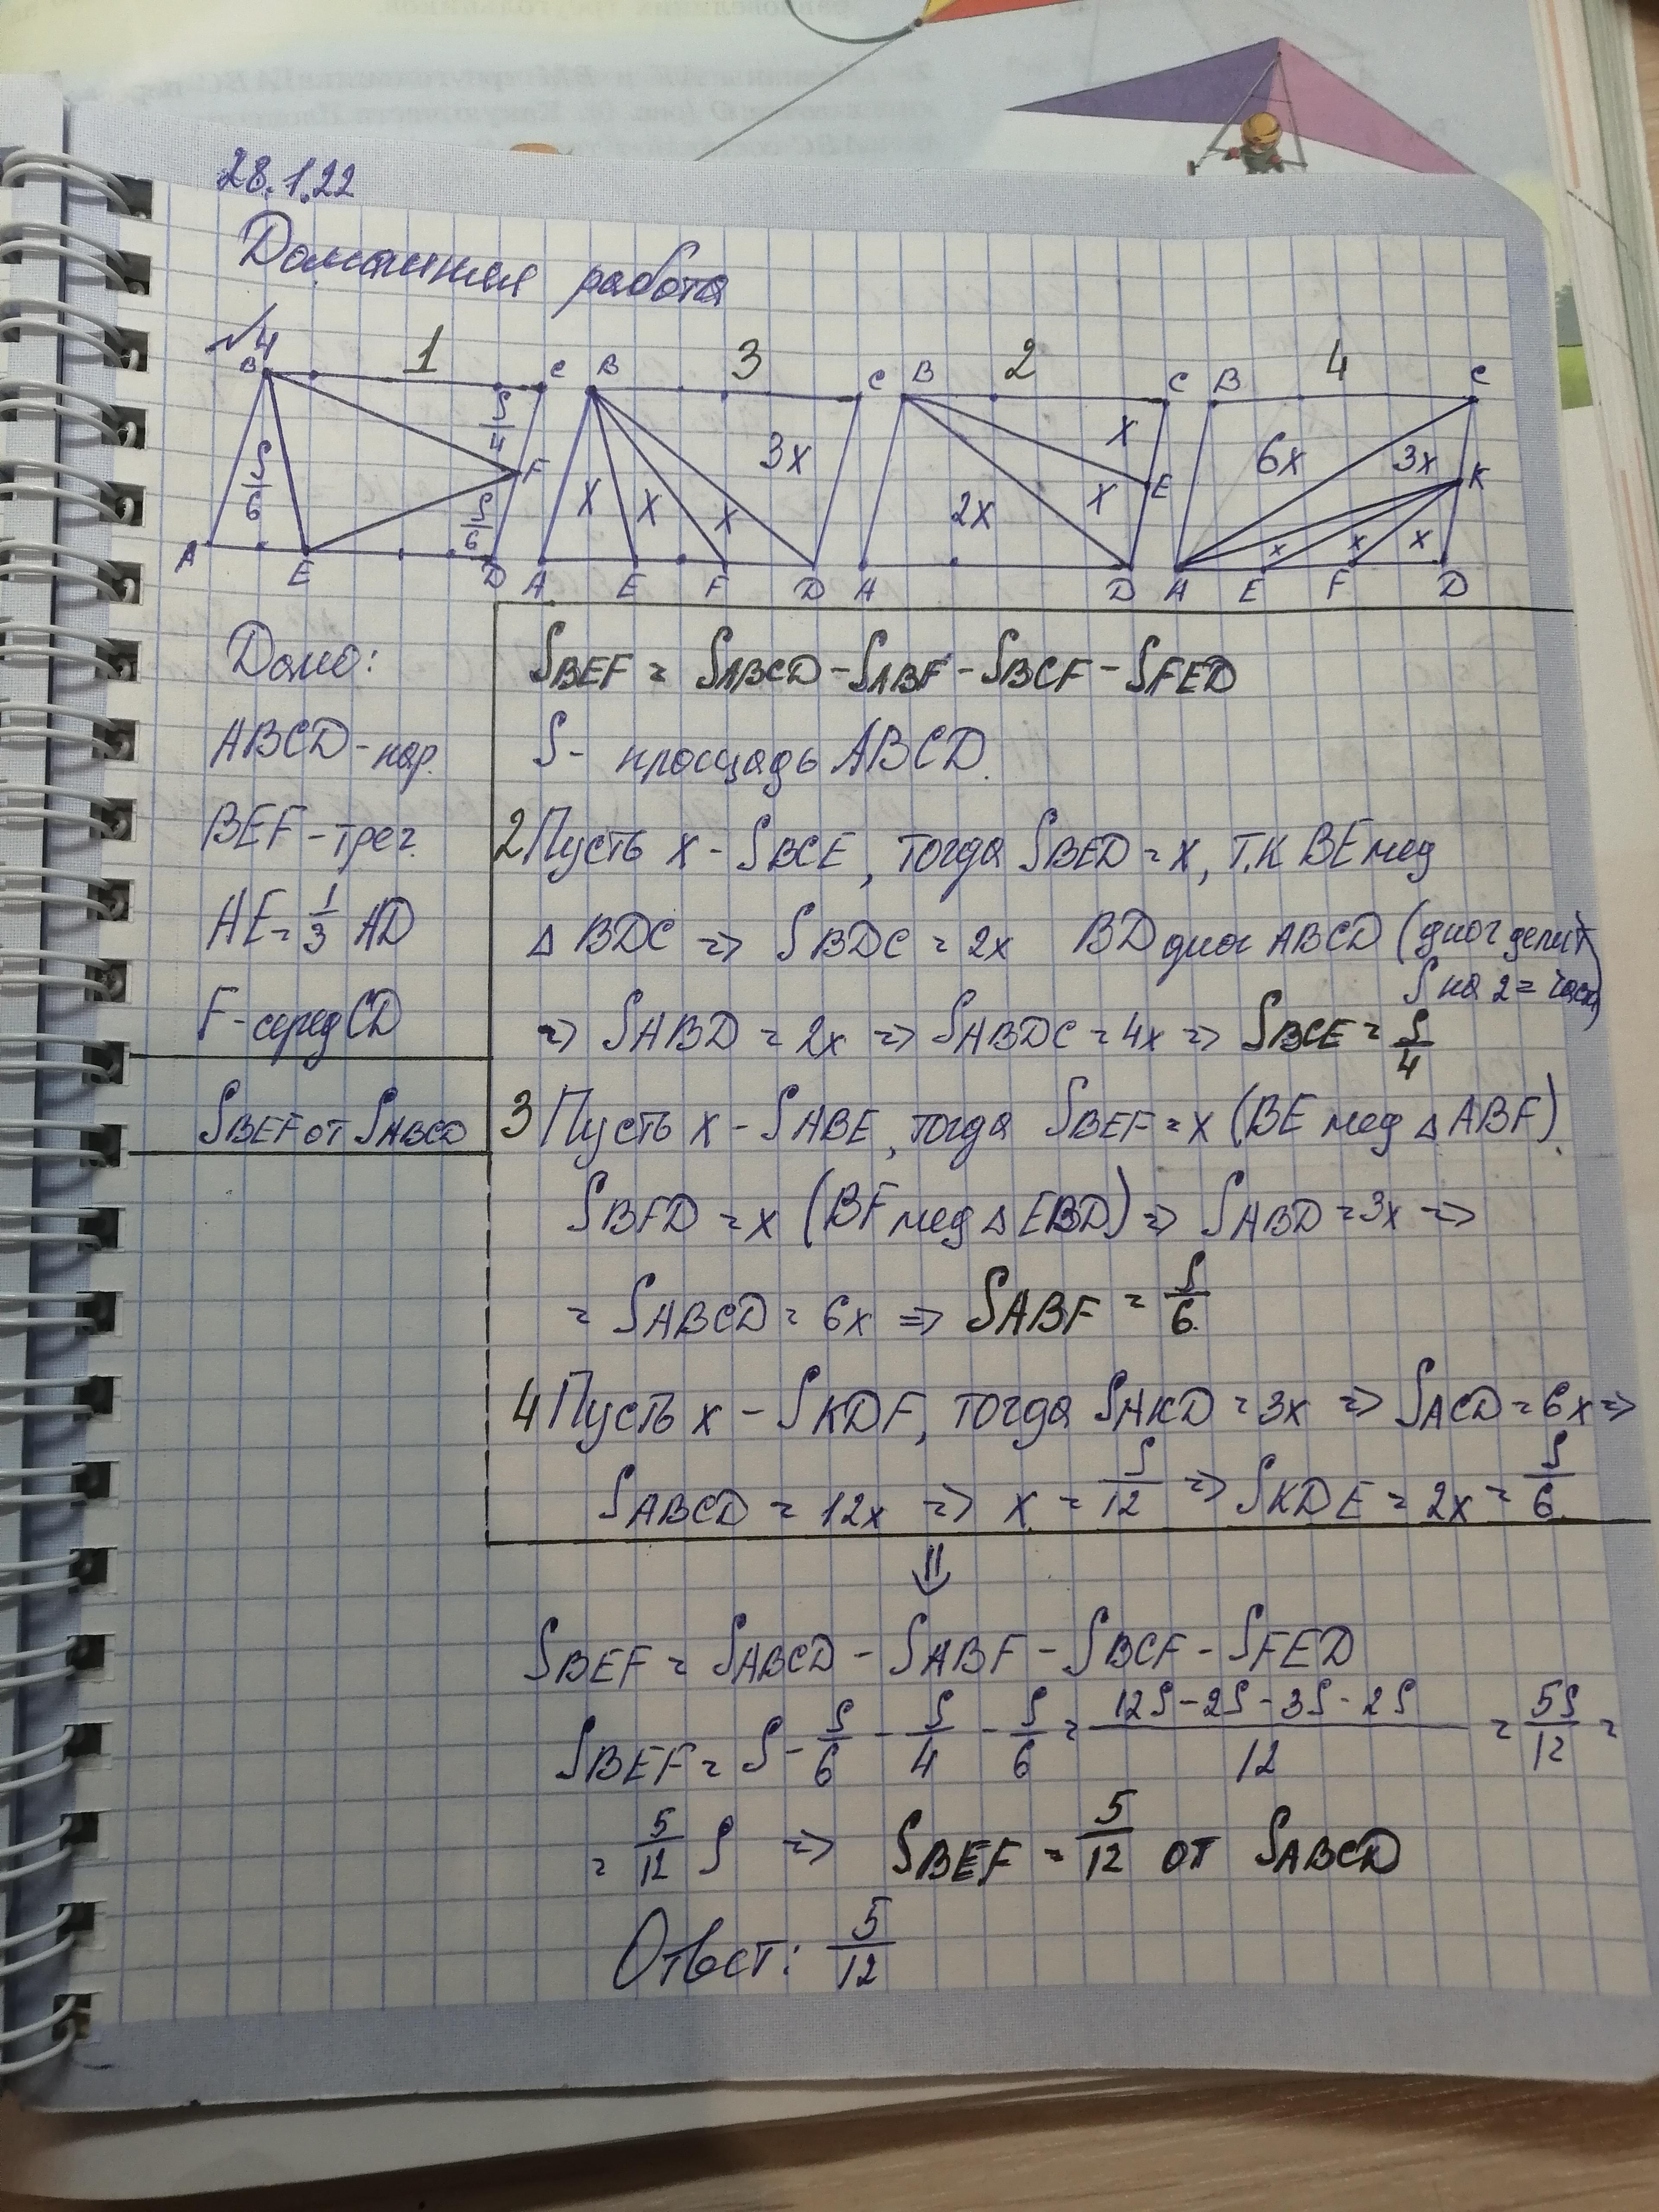 28.1.22
Домашняя работа
√4
1 3 2 4
B C B C B C B C
S/4 3x x 6x 3x
S/6 F x x x x E K
S/6 2x x x x
A E D A E F D A D A E F D
Дано:
ABCD - пар.
BEF - трег.
AE = 1/3 AD
F - серед CD
SBEF от SABCD
SBEF = SABCD - SABF - SBCF - SFED
S - площадь ABCD.
2 Пусть x - SBCE, тогда SBED = x, т.к BE мед
△ BDC => SBDC = 2x BD диаг ABCD (диаг делит
S на 2 = части)
=> SABD = 2x => SABDC = 4x => SBCE = S/4
3 Пусть x - SABE, тогда SBEF = x (BE мед △ ABF).
SBFD = x (BF мед △ EBD) => SABD = 3x =>
= SABCD = 6x => SABF = S/6.
4 Пусть x - SKDF, тогда SAKD = 3x => SACD = 6x =>
SABCD = 12x => x = S/12 => SKDE = 2x = S/6.
⇓
SBEF = SABCD - SABF - SBCF - SFED
SBEF = S - S/6 - S/4 - S/6 = 12S - 2S - 3S - 2S/12 = 5S/12 =
= 5/12 S => SBEF = 5/12 от SABCD
Ответ: 5/12